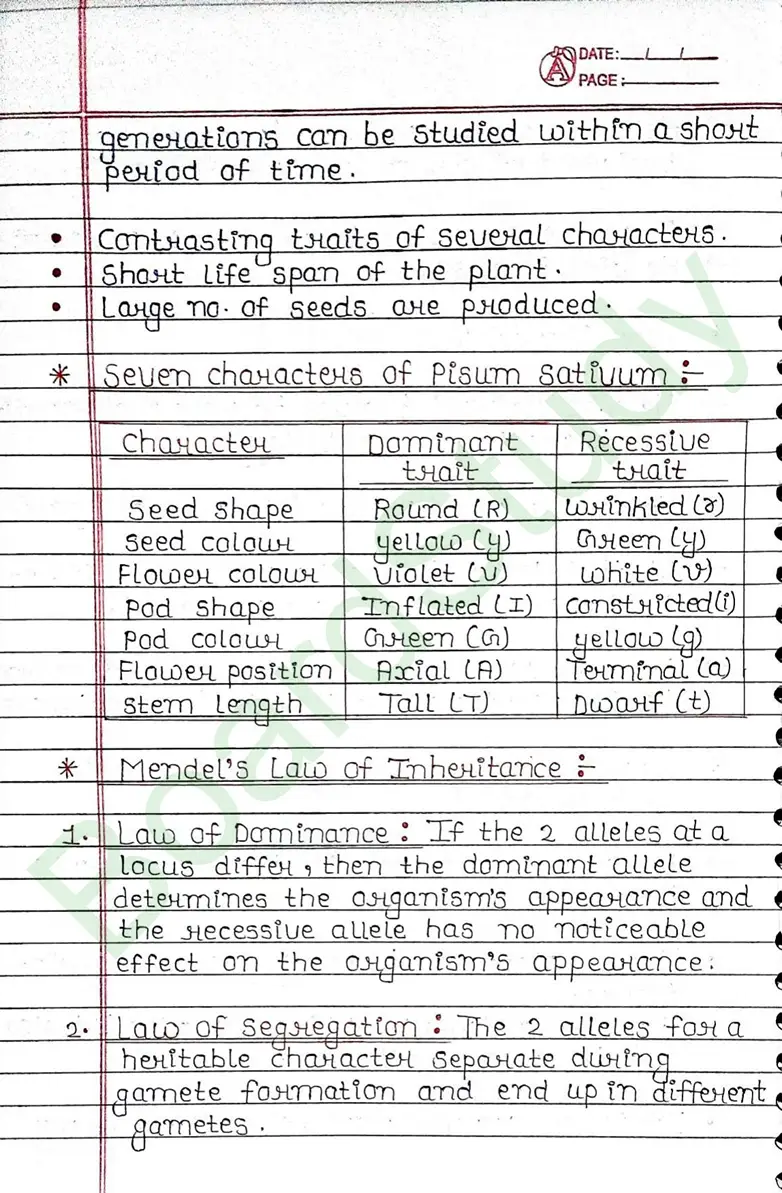 DATE:
PAGE:
generations can be studied within a short
period of time.
• Contrasting traits of several characters.
• Short life span of the plant.
• Large no. of seeds are produced.
* Seven characters of Pisum sativum :-
Character Dominant trait Recessive trait
Seed shape Round (R) wrinkled (r)
Seed colour yellow (y) Green (y)
Flower colour Violet (V) white (v)
Pod shape Inflated (I) constricted (i)
Pod colour Green (G) yellow (g)
Flower position Axial (A) Terminal (a)
Stem length Tall (T) Dwarf (t)
* Mendel's Law of Inheritance :-
1. Law of Dominance : If the 2 alleles at a
locus differ, then the dominant allele
determines the organism's appearance and
the recessive allele has no noticeable
effect on the organism's appearance.
2. Law of Segregation : The 2 alleles for a
heritable character separate during
gamete formation and end up in different
gametes.
BoardStudy